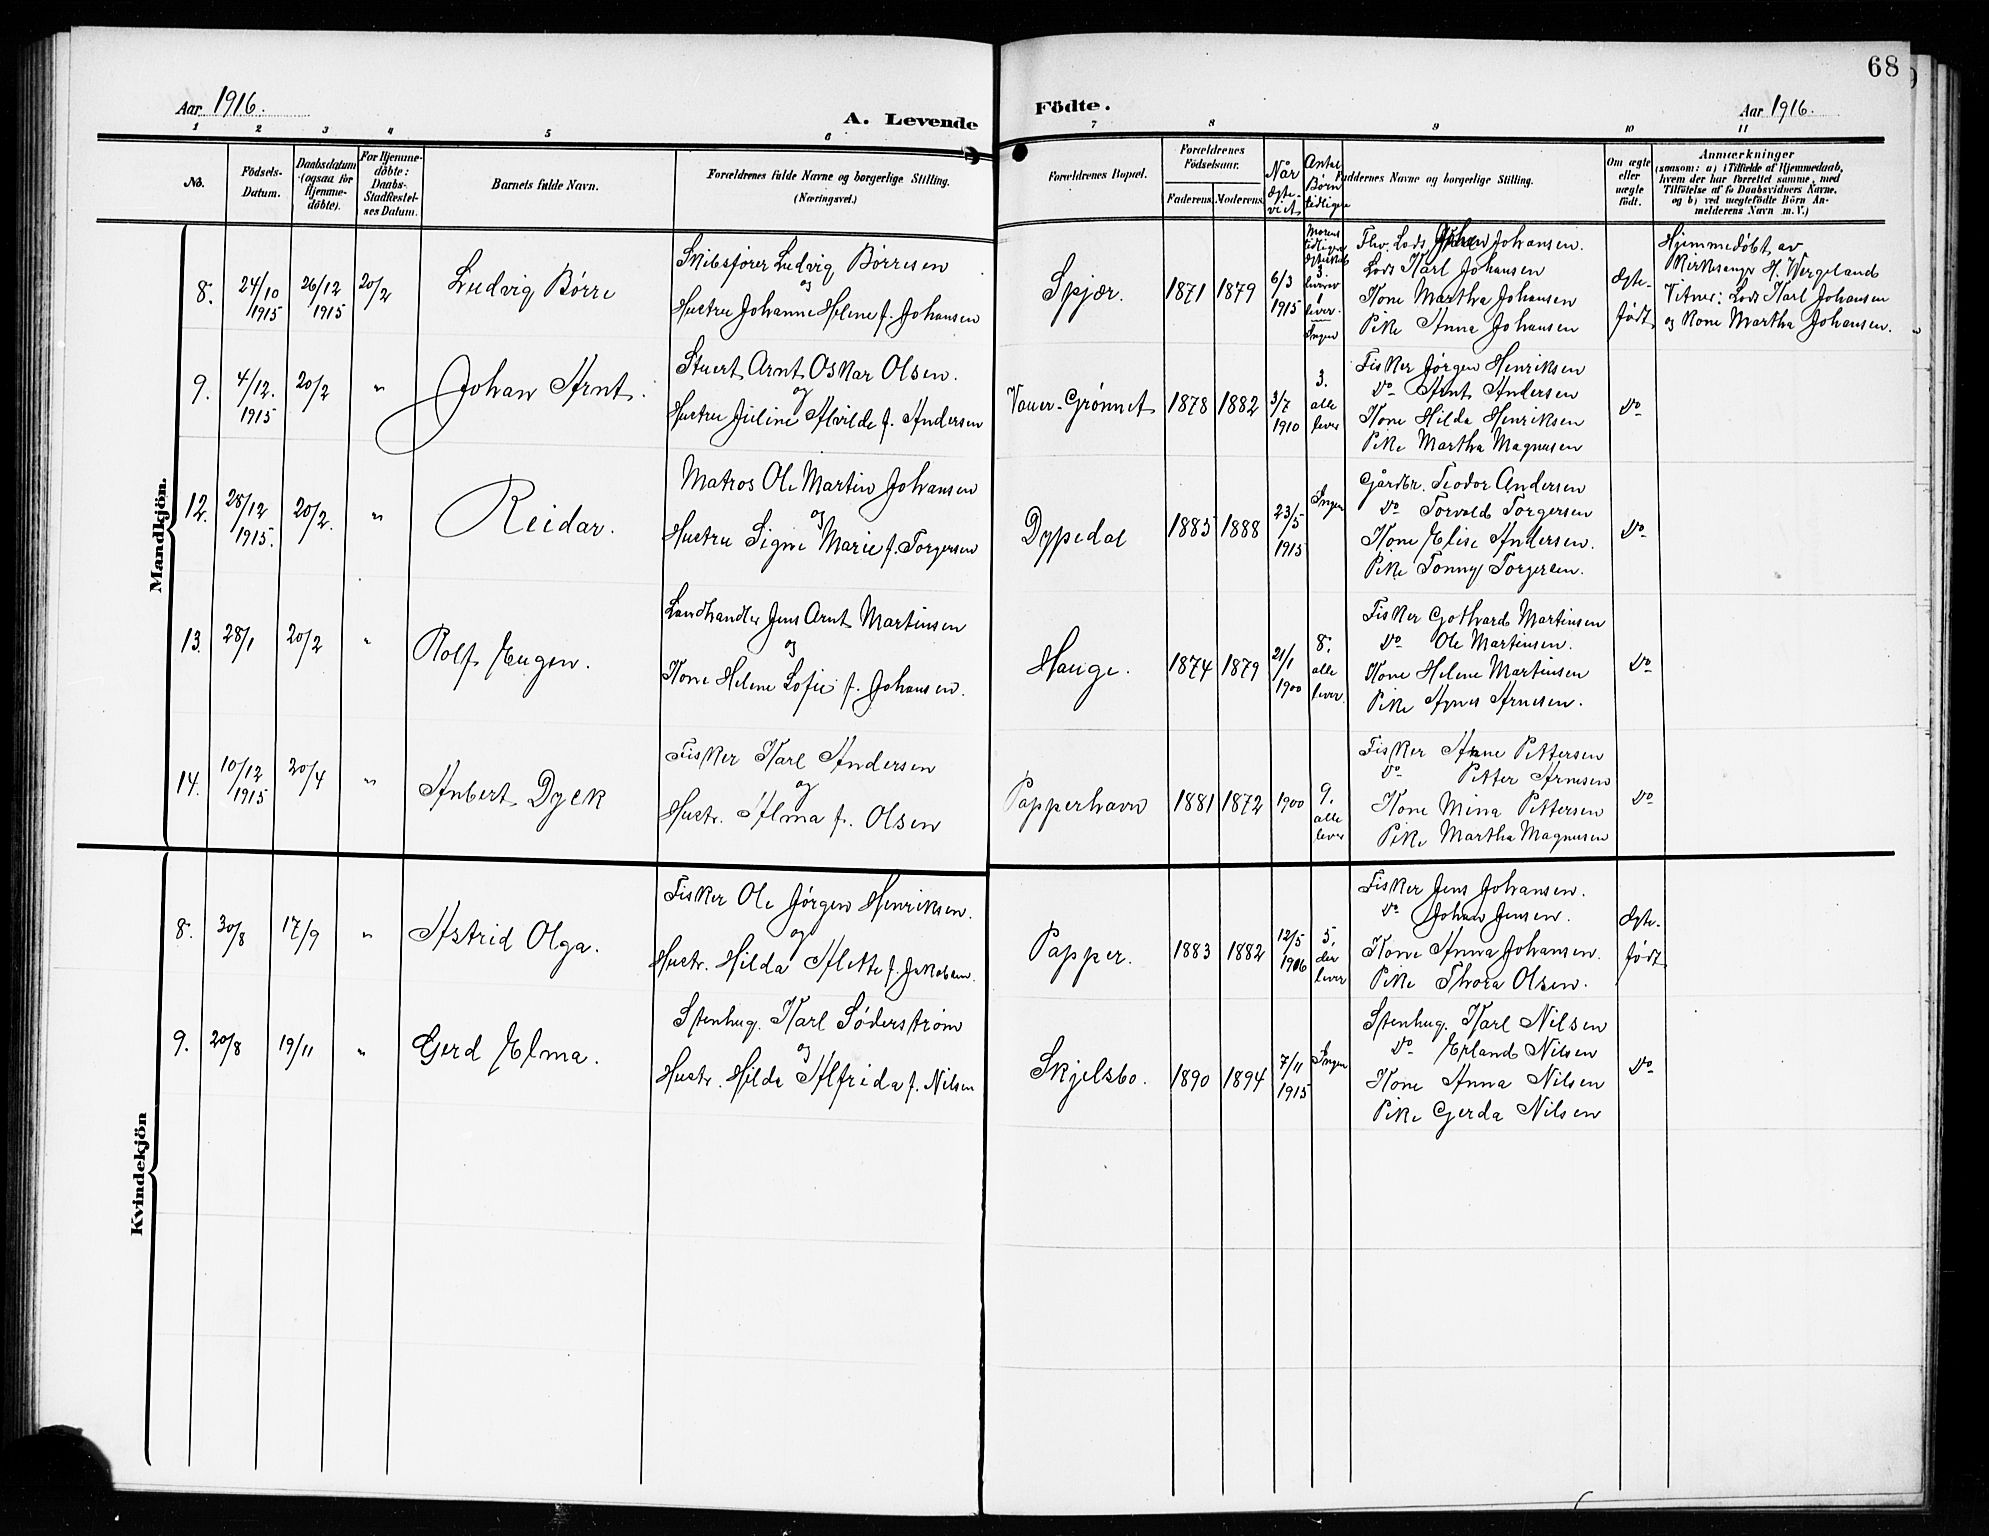 68
Aar 1916.
A. Levende
Födte.
Aar 1916.
1 2 3 4 5 6 7 8 9 10 11
No.
Födsels-
Datum.
Daabsdatum
(ogsaa for
Hjemme-
döbte).
For Hjemme-
döbte:
Daabs-
Stadfæstel-
ses Datum.
Barnets fulde Navn.
Forældrenes fulde Navne og borgerlige Stilling.
(Næringsvei.)
Forældrenes Bopæl.
Forældrenes
Födselsaar.
Faderens.
Moderens.
Når
ægte-
viet
Antal
Børn
tidligere
Faddernes Navne og borgerlige Stilling.
Om ægte
eller
uægte
födt.
Anmærkninger
(saasom: a) i Tilfælde af Hjemmedaab,
hvem der har forrettet samme, med
Tilföielse af to Daabsvidners Navne,
og b) ved uægtefödte Börn An-
melderens Navn m. V.)
Mandkjön.
8. 24/10 1915 26/12 1915 20/2
Ludvig Børre
Skibsfører Ludvig Børresen
og
Hustru Johanne Helene f. Johansen
Spjær. 1871 1879 6/3 1915
Morens
tidligere
3.
1
lever
Ingen
Fhv. Lods Johan Johansen.
Lods Karl Johansen
Kone Martha Johansen
Pike Anna Johansen
Ægte-
født
Hjemmedøbt av
Kirkesanger H. Wergeland
Vitner: Lods Karl Johansen
og Kone Martha Johansen.
9. 4/12. 1915 20/2 "
Johan Arnt.
Stuert Arnt Oskar Olsen.
og
Hustru Juline Alvilde f. Andersen
Vauer-Grønnet 1878 1882 3/7 1910
3.
alle
lever
Fisker Jørgen Henriksen
Do Arnt Andersen
Kone Hilda Henriksen
Pike Martha Magnusen
Do
12. 28/12 1915. 20/2. "
Reidar.
Matros Ole Martin Johansen
og
Hustru Signe Marie f. Torgersen
Dypedal 1885 1888 23/5 1915
Ingen
Gårdbr. Teodor Andersen
Do Torvald Torgersen
Kone Elise Andersen.
Pike Tonny Torgersen.
Do
13. 28/1 20/2 "
Rolf Eugen.
Landhandler Jens Arnt Martinsen
og
Kone Helene Sofie f. Johansen.
Hauge. 1874 1879 21/1 1900
8.
alle
lever.
Fisker Gothard Martinsen
Do Ole Martinsen.
Kone Helene Martinsen
Pike Agnes Arnesen.
Do
14. 10/12 1915 20/4 "
Anbert Dyck
Fisker Karl Andersen
og
Hustr. Alma f. Olsen
Papperhavn 1881 1872 1900
9.
alle
lever
Fisker Arne Pettersen
Do Petter Arnesen
Kone Mina Pettersen
Pike Martha Magnusen
Do
Kvindekjön
8. 30/8 17/9 "
Astrid Olga.
Fisker Ole Jørgen Henriksen.
og
Hustr. Hilda Alette f. Jakobsen.
Papper. 1883 1882 12/5 1906
5.
der
lever
Fisker Jens Johansen.
Do Johan Jensen.
Kone Anna Johansen.
Pike Thora Olsen.
Ægte-
født
9. 20/8 19/11 "
Gerd Elma.
Stenhug. Karl Söderstrøm
og
Hustr. Hilda Alfrida f. Nilsen
Skjelsbo. 1890 1894 7/11 1915
Ingen
Stenhug. Karl Nilsen
Do Erland Nilsen
Kone Anna Nilsen
Pike Gerda Nilsen
Do